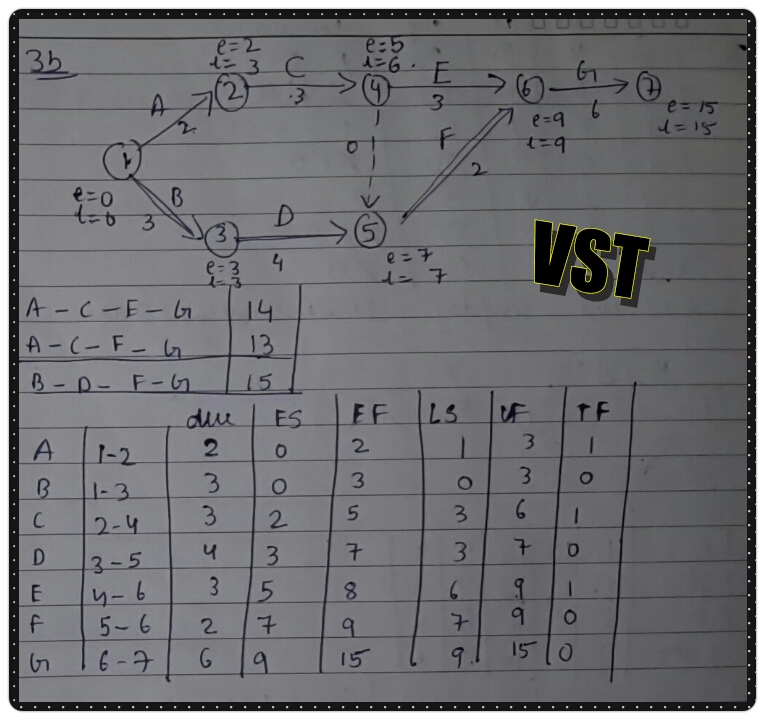 3b
e=2
l= 3
e=5
l=6.
A
2
C
3
E
3
G
6
1
2
4
6
7
e=0
l=0
B
3
0
F
2
e=9
l=9
e=15
l=15
D
4
3
5
e=3
l=3
e=7
l= 7
VST
A - C - E - G 14
A - C - F - G 13
B - D - F - G 15
ES EF LS LF TF
A 1-2 2 0 2 1 3 1
B 1-3 3 0 3 0 3 0
C 2-4 3 2 5 3 6 1
D 3-5 4 3 7 3 7 0
E 4-6 3 5 8 6 9 1
F 5-6 2 7 9 7 9 0
G 6-7 6 9 15 9 15 0